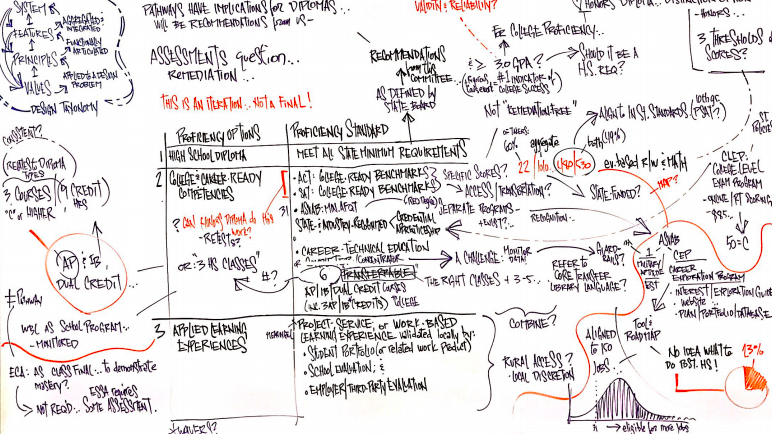 SYSTEM
FEATURES
PRINCIPLES
VALUES
INTEGRATED
FUNCTIONALLY
ARTICULATED
APPLIED TO A DESIGN
PROBLEM
DESIGN TAXONOMY
PATHWAYS HAVE IMPLICATIONS FOR DIPLOMAS...
WILL BE RECOMMENDATIONS from US -
ASSESSMENTS question...
REMEDIATION...
THIS IS AN ITERATION... NOT A FINAL!
RECOMMENDATIONS
from this
COMMITTEE...
AS DEFINED by
STATE BOARD
VALIDITY & RELIABILITY?
COLLEGE PROFICIENCY...
3.0 GPA?
#1 INDICATOR of
COLLEGE SUCCESS
SHOULD IT BE A
H.S. REQ?
HONORS DIPLOMA...
- HONORS...
3 THRESHOLDS
SCORES?
NOT "REMEDIATION FREE"
OTHERS:
60%
aggregate
22
1010
both (49%)
ALIGN to IN. STANDARDS
(PSAT?)
ev. based R/W & MATH
MAP?
STATE FUNDED?
CONSISTENT?
3 COURSES
"C" or HIGHER
(9 CREDIT)
HRS
AP & IB,
DUAL CREDIT...
≠ Pathway
W3L AS School PROGRAM...
- MONITORED
ECA: AS CLASS FINAL... to demonstrate
mastery?
ESSA requires
NOT REQD... SOME ASSESSMENT.
PROFICIENCY OPTIONS
PROFICIENCY STANDARD
1 HIGH SCHOOL DIPLOMA
MEET ALL STATE MINIMUM REQUIREMENTS
2 COLLEGE & CAREER-READY
COMPETENCIES
• ACT: COLLEGE-READY BENCHMARKS
• SAT: COLLEGE READY BENCHMARKS
• ASVAB: MIN. AFQT
31
• STATE & INDUSTRY-RECOGNIZED
CREDENTIAL
APPRENTICESHIP
• CAREER-TECHNICAL EDUCATION
CONCENTRATOR
OR: "3 HS CLASSES"
#?
6
TRANSFERRABLE
AP/IB/DUAL CREDIT COURSES
COLLEGE
3 APPLIED LEARNING
EXPERIENCES
PROJECT, SERVICE, or WORK-BASED
LEARNING EXPERIENCE validated locally by:
• STUDENT PORTFOLIO (or related work product)
• SCHOOL EVALUATION; &
• EMPLOYER/THIRD PARTY EVALUATION
WAIVERS?
SPECIFIC SCORES?
ACCESS/TRANSPORTATION?
SEPARATE PROGRAMS -
- EXIST?...
RECOGNITION...
A CHALLENGE: MONITOR
DATA
THE RIGHT CLASSES + 3-5...
GUARD-
RAILS?
REFER to
CORE TRANSFER
LIBRARY LANGUAGE?
COMBINE?
RURAL ACCESS?
- LOCAL DISCRETION
CLEP:
COLLEGE-LEVEL
EXAM PROGRAM
$95...
50 = C
ASVAB
1
MILITARY
APTITUDE
TEST
CEP
CAREER
EXPLORATION PROGRAM
- INTEREST/EXPLORATION GUIDE
- Website...
- PLAN/PORTFOLIO/DATABASE
TOOL &
ROADMAP
ALIGNED
to 150
JOBS...
NO IDEA WHAT to
DO POST. HS!
13%
→ eligible for more jobs